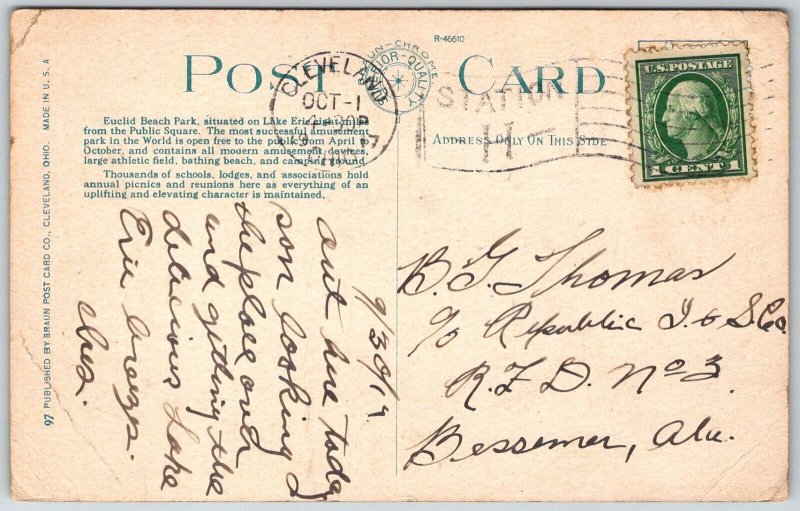 R-46610
POST CARD
UN-CHROME
COLOR-QUALITY
CLEVELAND
OCT-1
STATION
H
U.S. POSTAGE
1 CENT 1
ADDRESS ONLY ON THIS SIDE
Euclid Beach Park, situated on Lake Erie, eight miles
from the Public Square. The most successful amusement
park in the World is open free to the public from April to
October, and contains all modern amusement devices,
large athletic field, bathing beach, and camping ground.
Thousands of schools, lodges, and associations hold
annual picnics and reunions here as everything of an
uplifting and elevating character is maintained.
97 PUBLISHED BY BRAUN POST CARD CO., CLEVELAND, OHIO. MADE IN U. S. A
9/30/17
out here today
son looking
the place over
and getting the
delicious Lake
Erie breeze.
Ches.
B. G. Thomas
c/o Republic I. & S. Co.
R. F. D. No 3.
Bessemer, Ala.